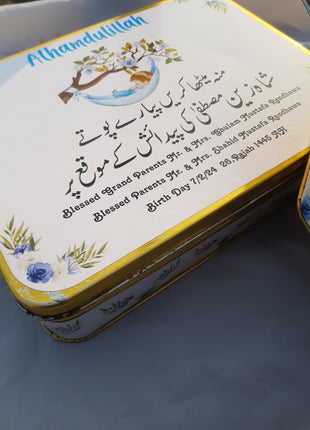 Alhamdulillah
منہ میٹھا کریں پیارے پوتے
شاہ زین مصطفیٰ کی پیدائش کے موقع پر
Blessed Grand Parents Mr. & Mrs. Ghulam Mustafa Randhawa
Blessed Parents Mr. & Mrs. Shahid Mustafa Randhawa
Birth Day 7/2/24 26.Rajab 1445 AH